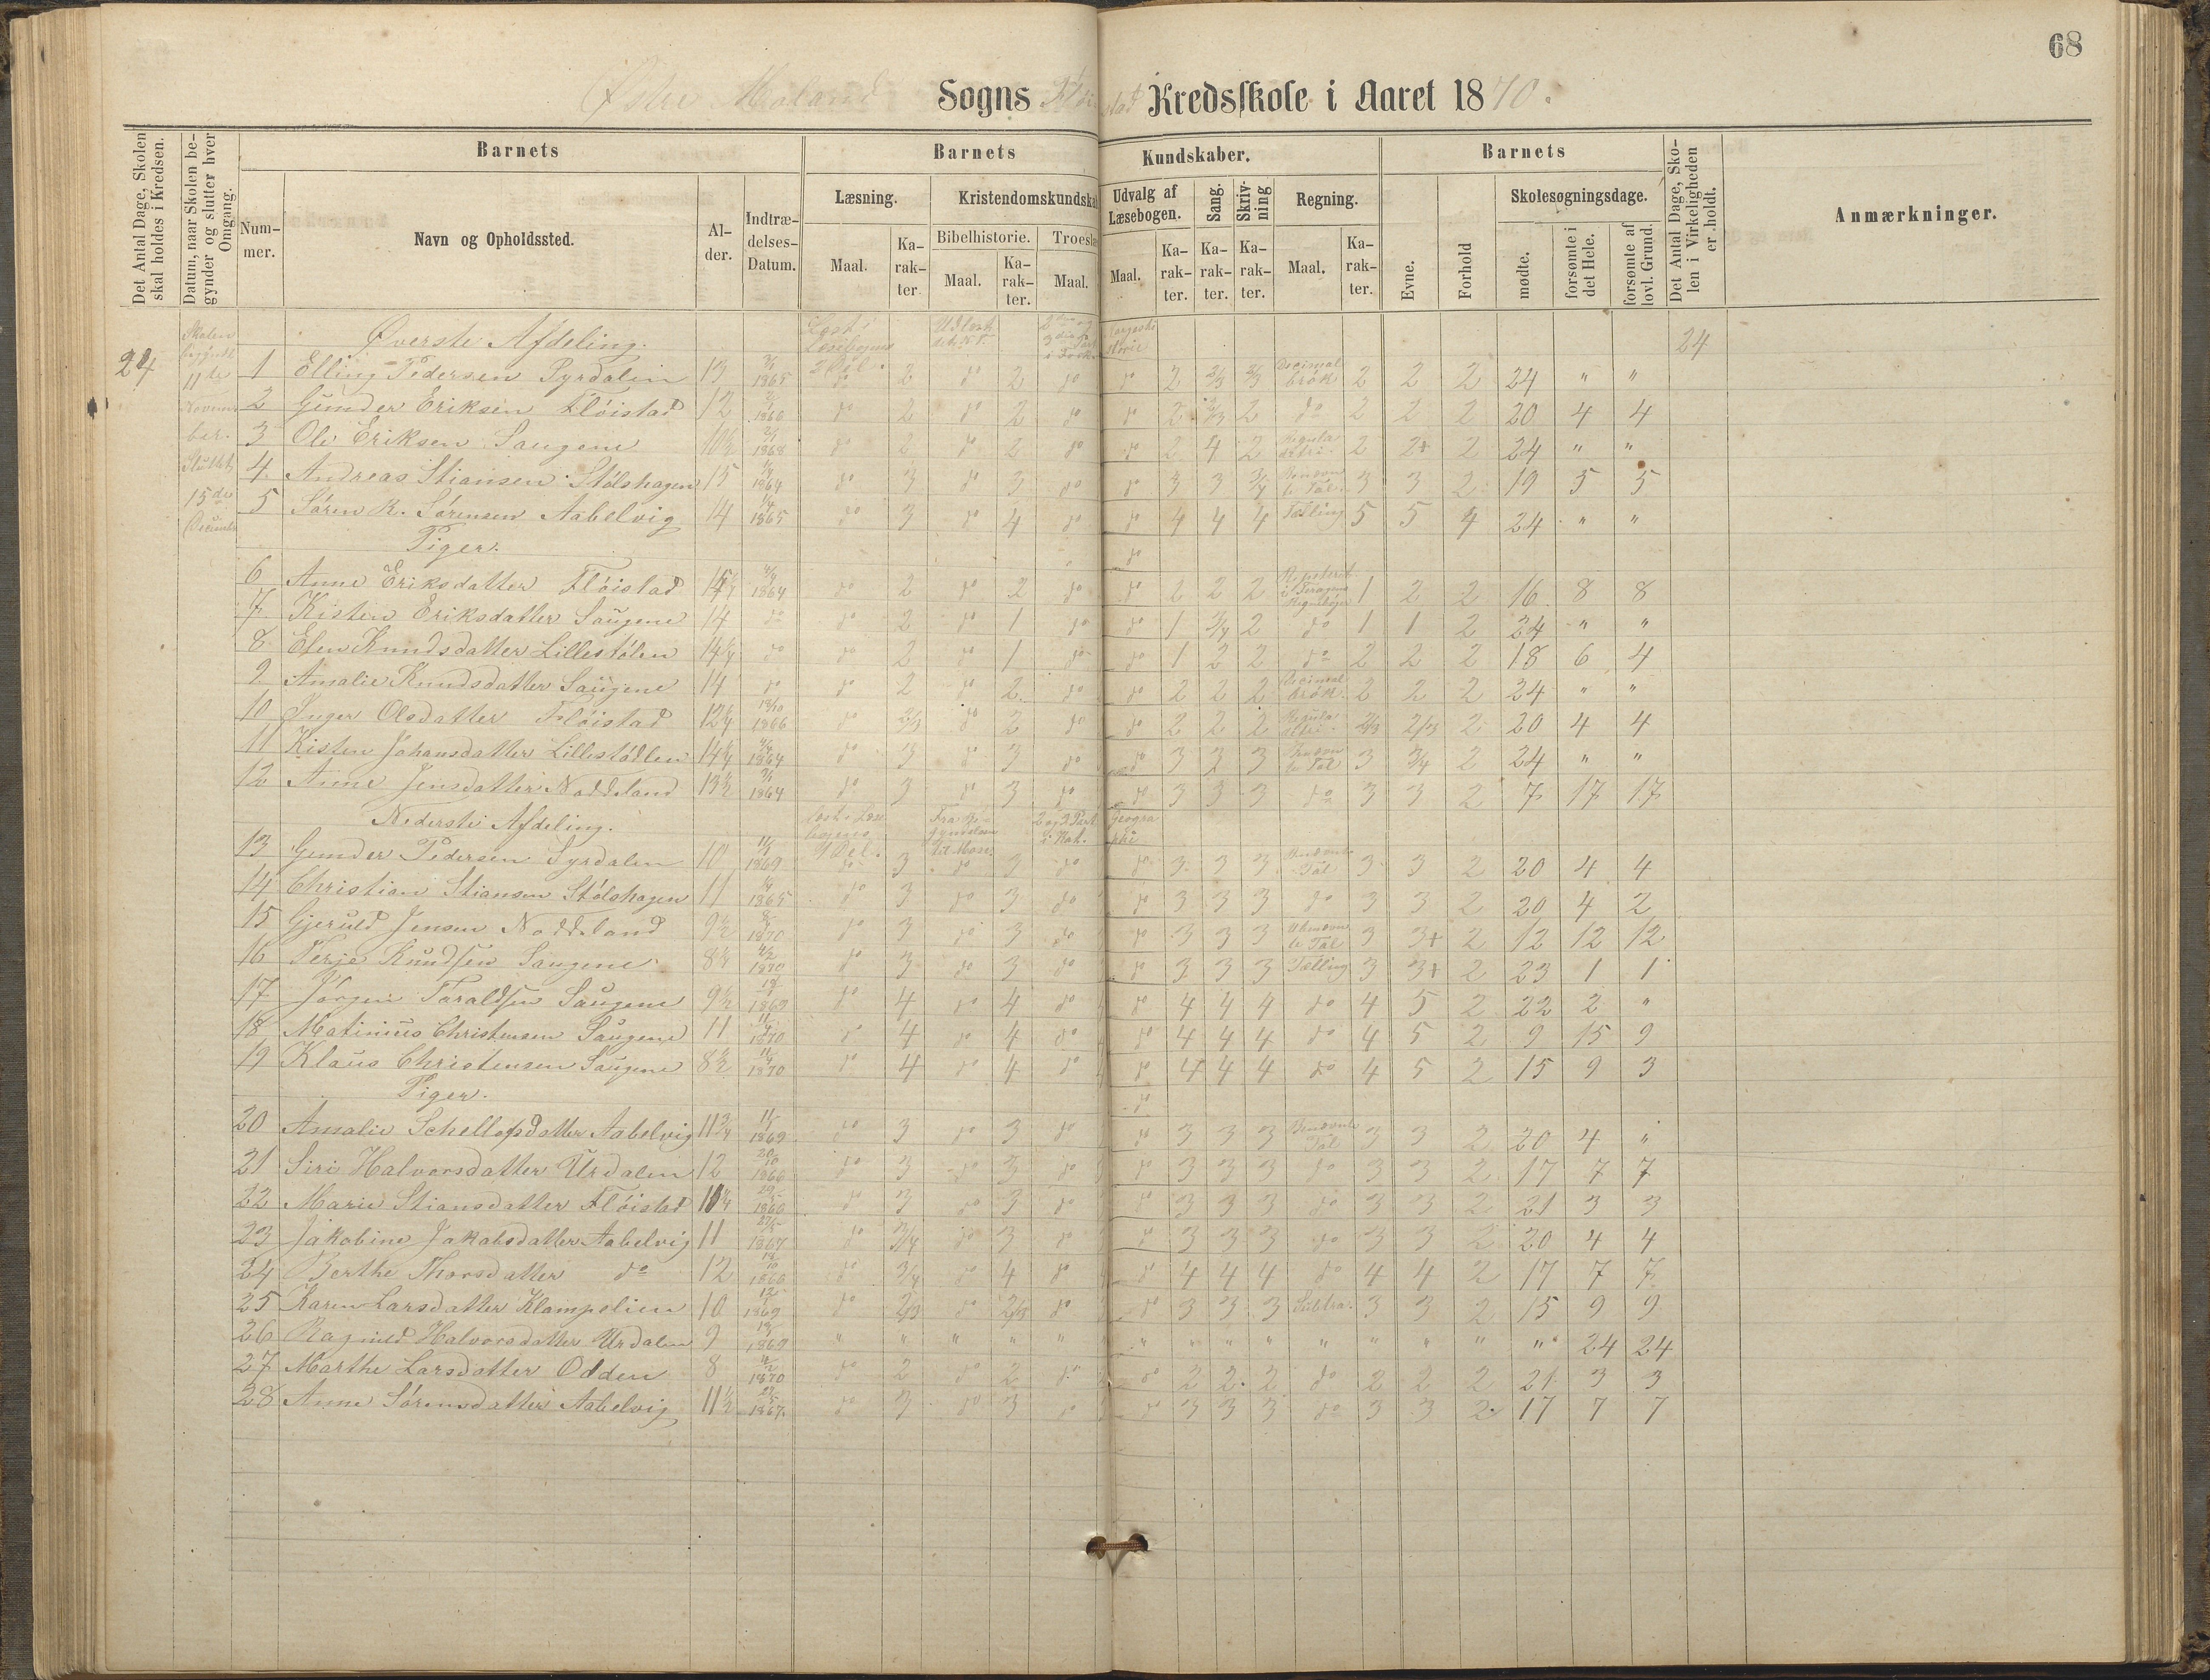 68
Østre Moland Sogns Fløistad Kredsskole i Aaret 1870.
Det Antal Dage, Skolen skal holdes i Kredsen.
Datum, naar Skolen begynder og slutter hver Omgang.
Barnets
Nummer.
Navn og Opholdssted.
Alder.
Indtrædelses-Datum.
Barnets Kundskaber.
Læsning.
Maal.
Karakter
Kristendomskundskab
Bibelhistorie.
Maal.
Karakter.
Troeslæ
Maal.
Udvalg af Læsebogen.
Maal.
Karakter.
Sang.
Karakter.
Skrivning
Karakter.
Regning.
Maal.
Karakter.
Barnets
Evne.
Forhold
Skolesøgningsdage.
mødte.
forsømte i det Hele.
forsømte af lovl. Grund.
Det Antal Dage, Skolen i Virkeligheden er holdt.
Anmærkninger.
24
Skolen begyndt 11te November. Sluttet 15de December
Øverste Afdeling. Læst i Læsebogens 2 Del. 24
1 Elling Pedersen Syrdalen 13 1865 do 2 do 2 do do 2 2/3 2/3 Decimalbrøk 2 2 2 24 " "
2 Gunder Eriksen Fløistad 12 1866 do 2 do 2 do do 2 2/3 2 do 2 2 2 20 4 4
3 Ole Eriksen Saugene 10½ 1868 do 2 do 2 do do 2 4 2 Regula detri. 2 2+ 2 24 " "
4 Andreas Stiansen Stølshagen 15 1864 do 3 do 3 do do 3 3 3/4 Benævnte Tal. 3 3 2 19 5 5
5 Søren R. Sørensen Aabelvig 14 1865 do 3 do 4 do do 4 4 4 Tælling 5 5 4 24 " "
Piger. do
6 Anne Eriksdatter Fløistad 1864 do 2 do 2 do do 2 2 2 1 2 2 16 8 8
7 Kisten Eriksdatter Saugene 14 do do 2 do 1 do do 1 3/4 2 do 1 1 2 24 " "
8 Elen Knudsdatter Lillestølen 14¼ do do 2 do 1 do do 1 2 2 do 2 2 2 18 6 4
9 Amalie Knudsdatter Saugene 14 do do 2 do 2 do do 2 2 2 Decimalbrøk. 2 2 2 24 " "
10 Inger Olsdatter Fløistad 12¼ 1866 do 2/3 do 2 do do 2 2 2 Regula detri. 2/3 2/3 2 20 4 4
11 Kisten Johansdatter Lillestødlen 14¼ 1864 do 3 do 3 do do 3 3 3 Benævnte Tal 3 3/4 2 24 " "
12 Anne Jensdatter Noddeland 13½ 1864 do 3 do 3 do do 3 3 3 do 3 3 2 7 17 17
Nederste Afdeling. Fra Begyndelsen til Mose. Geographi
13 Gunder Pedersen Syrdalen 10 1869 do 3 do 3 do do 3 3 3 3 3 2 20 4 4
14 Christian Stiansen Stølshagen 11 1865 do 3 do 3 do do 3 3 3 do 3 3 2 20 4 2
15 Gjeruld Jensen Noddeland 9½ 1870 do 3 do 3 do do 3 3 3 Ubenævnte Tal 3 3+ 2 12 12 12
16 Terje Knudsen Saugene 8¼ 1870 do 3 do 3 do do 3 3 3 Tælling 3 3+ 2 23 1 1
17 Jørgen Taraldsen Saugene 9½ 1869 do 4 do 4 do do 4 4 4 do 4 5 2 22 2 "
18 Matinius Christensen Saugene 11 1870 do 4 do 4 do do 4 4 4 do 4 5 2 9 15 9
19 Klaus Christensen Saugene 8½ 1870 do 4 do 4 do do 4 4 4 do 4 5 2 15 9 3
Piger. do
20 Amalie Schellofsdatter Aabelvig 11¾ 1869 do 3 do 3 do do 3 3 3 Benævnte Tal 3 3 2 20 4 "
21 Siri Halvorsdatter Urdalen 12 1866 do 3 do 3 do do 3 3 3 do 3 3 2 17 7 7
22 Marie Stiansdatter Fløistad 1866 do 3 do 3 do do 3 3 3 do 3 3 2 21 3 3
23 Jakobine Jakobsdatter Aabelvig 11 1867 do 3/4 do 3 do do 3 3 3 do 3 3 2 20 4 4
24 Berthe Thorsdatter do 12 1866 do 3/4 do 4 do do 4 4 4 do 4 4 2 17 7 7
25 Karen Larsdatter Klampelien 10 1869 do 2/3 do 2/3 do do 3 3 3 Subtra. 3 3 2 15 9 9
26 Ragnild Halvorsdatter Urdalen 9 1869 " " " " " " " " " " " " " " 24 24
27 Marthe Larsdatter Odden 8 1870 do 2 do 2 do do 2 2 2 do 2 2 2 21 3 3
28 Anne Sørensdatter Aabelvig 11½ 1867 do 3 do 3 do do 3 3 3 do 3 3 2 17 7 7